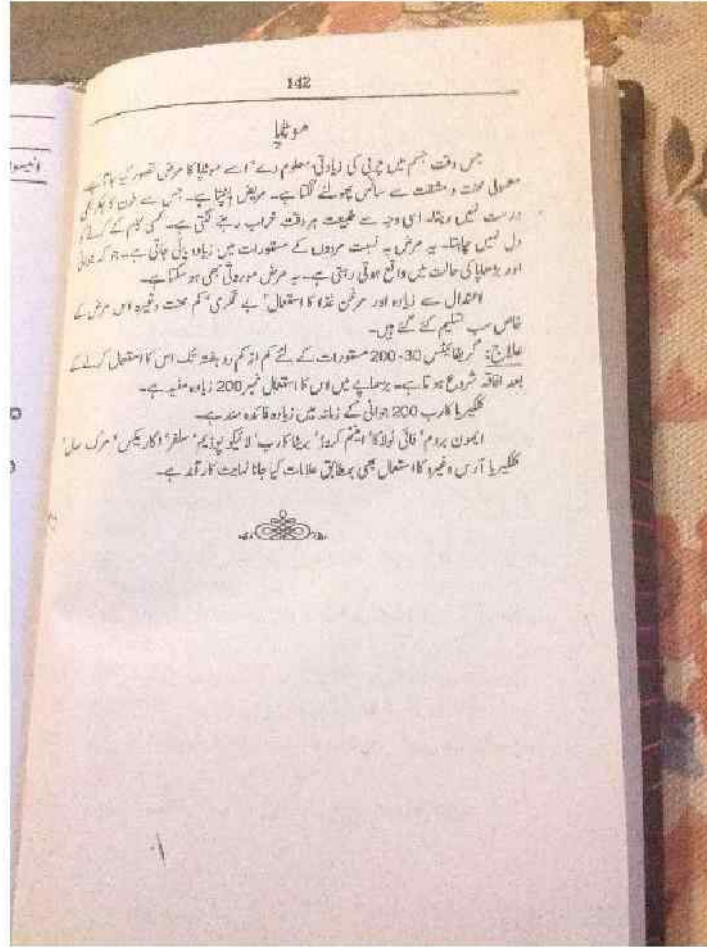 142
موٹاپا
جس وقت جسم میں چربی کی زیادتی معلوم دے' اسے موٹاپا کا مرض تصور کیا جاتا ہے۔
معمولی محنت و مشقت سے سانس پھولنے لگتا ہے۔ مریض ہانپتا ہے۔ جس سے خون کا
درست نہیں ہوتا۔ اسی وجہ سے طبیعت ہر وقت خراب رہنے لگتی ہے۔ کسی کام کے کرنے کو
دل نہیں چاہتا۔ یہ مرض بہ نسبت مردوں کے مستورات میں زیادہ پائی جاتی ہے۔ جو کہ جوانی
اور بڑھاپا کی حالت میں واقع ہوتی رہتی ہے۔ یہ مرض موروثی بھی ہو سکتا ہے۔
اعتدال سے زیادہ اور مرغن غذا کا استعمال' بے فکری' کم محنت وغیرہ اس مرض کے
خاص سبب تسلیم کئے گئے ہیں۔
علاج: گریفائیٹس 30-200 مستورات کے لئے کم از کم دو ہفتہ تک اس کا استعمال کرنے کے
بعد افاقہ شروع ہوتا ہے۔ بڑھاپے میں اس کا استعمال نمبر 200 زیادہ مفید ہے۔
کلکیریا کارب 200 جوانی کے زمانہ میں زیادہ فائدہ مند ہے۔
ایمون بروم' فائی ٹولاکا' اینٹم کروڈ' بریٹا کارب' لائیکو پوڈیم' سلفر' اگاریکس' مرک سال'
کلکیریا آرس وغیرہ کا استعمال بھی بمطابق علامات کیا جانا نہایت کار آمد ہے۔